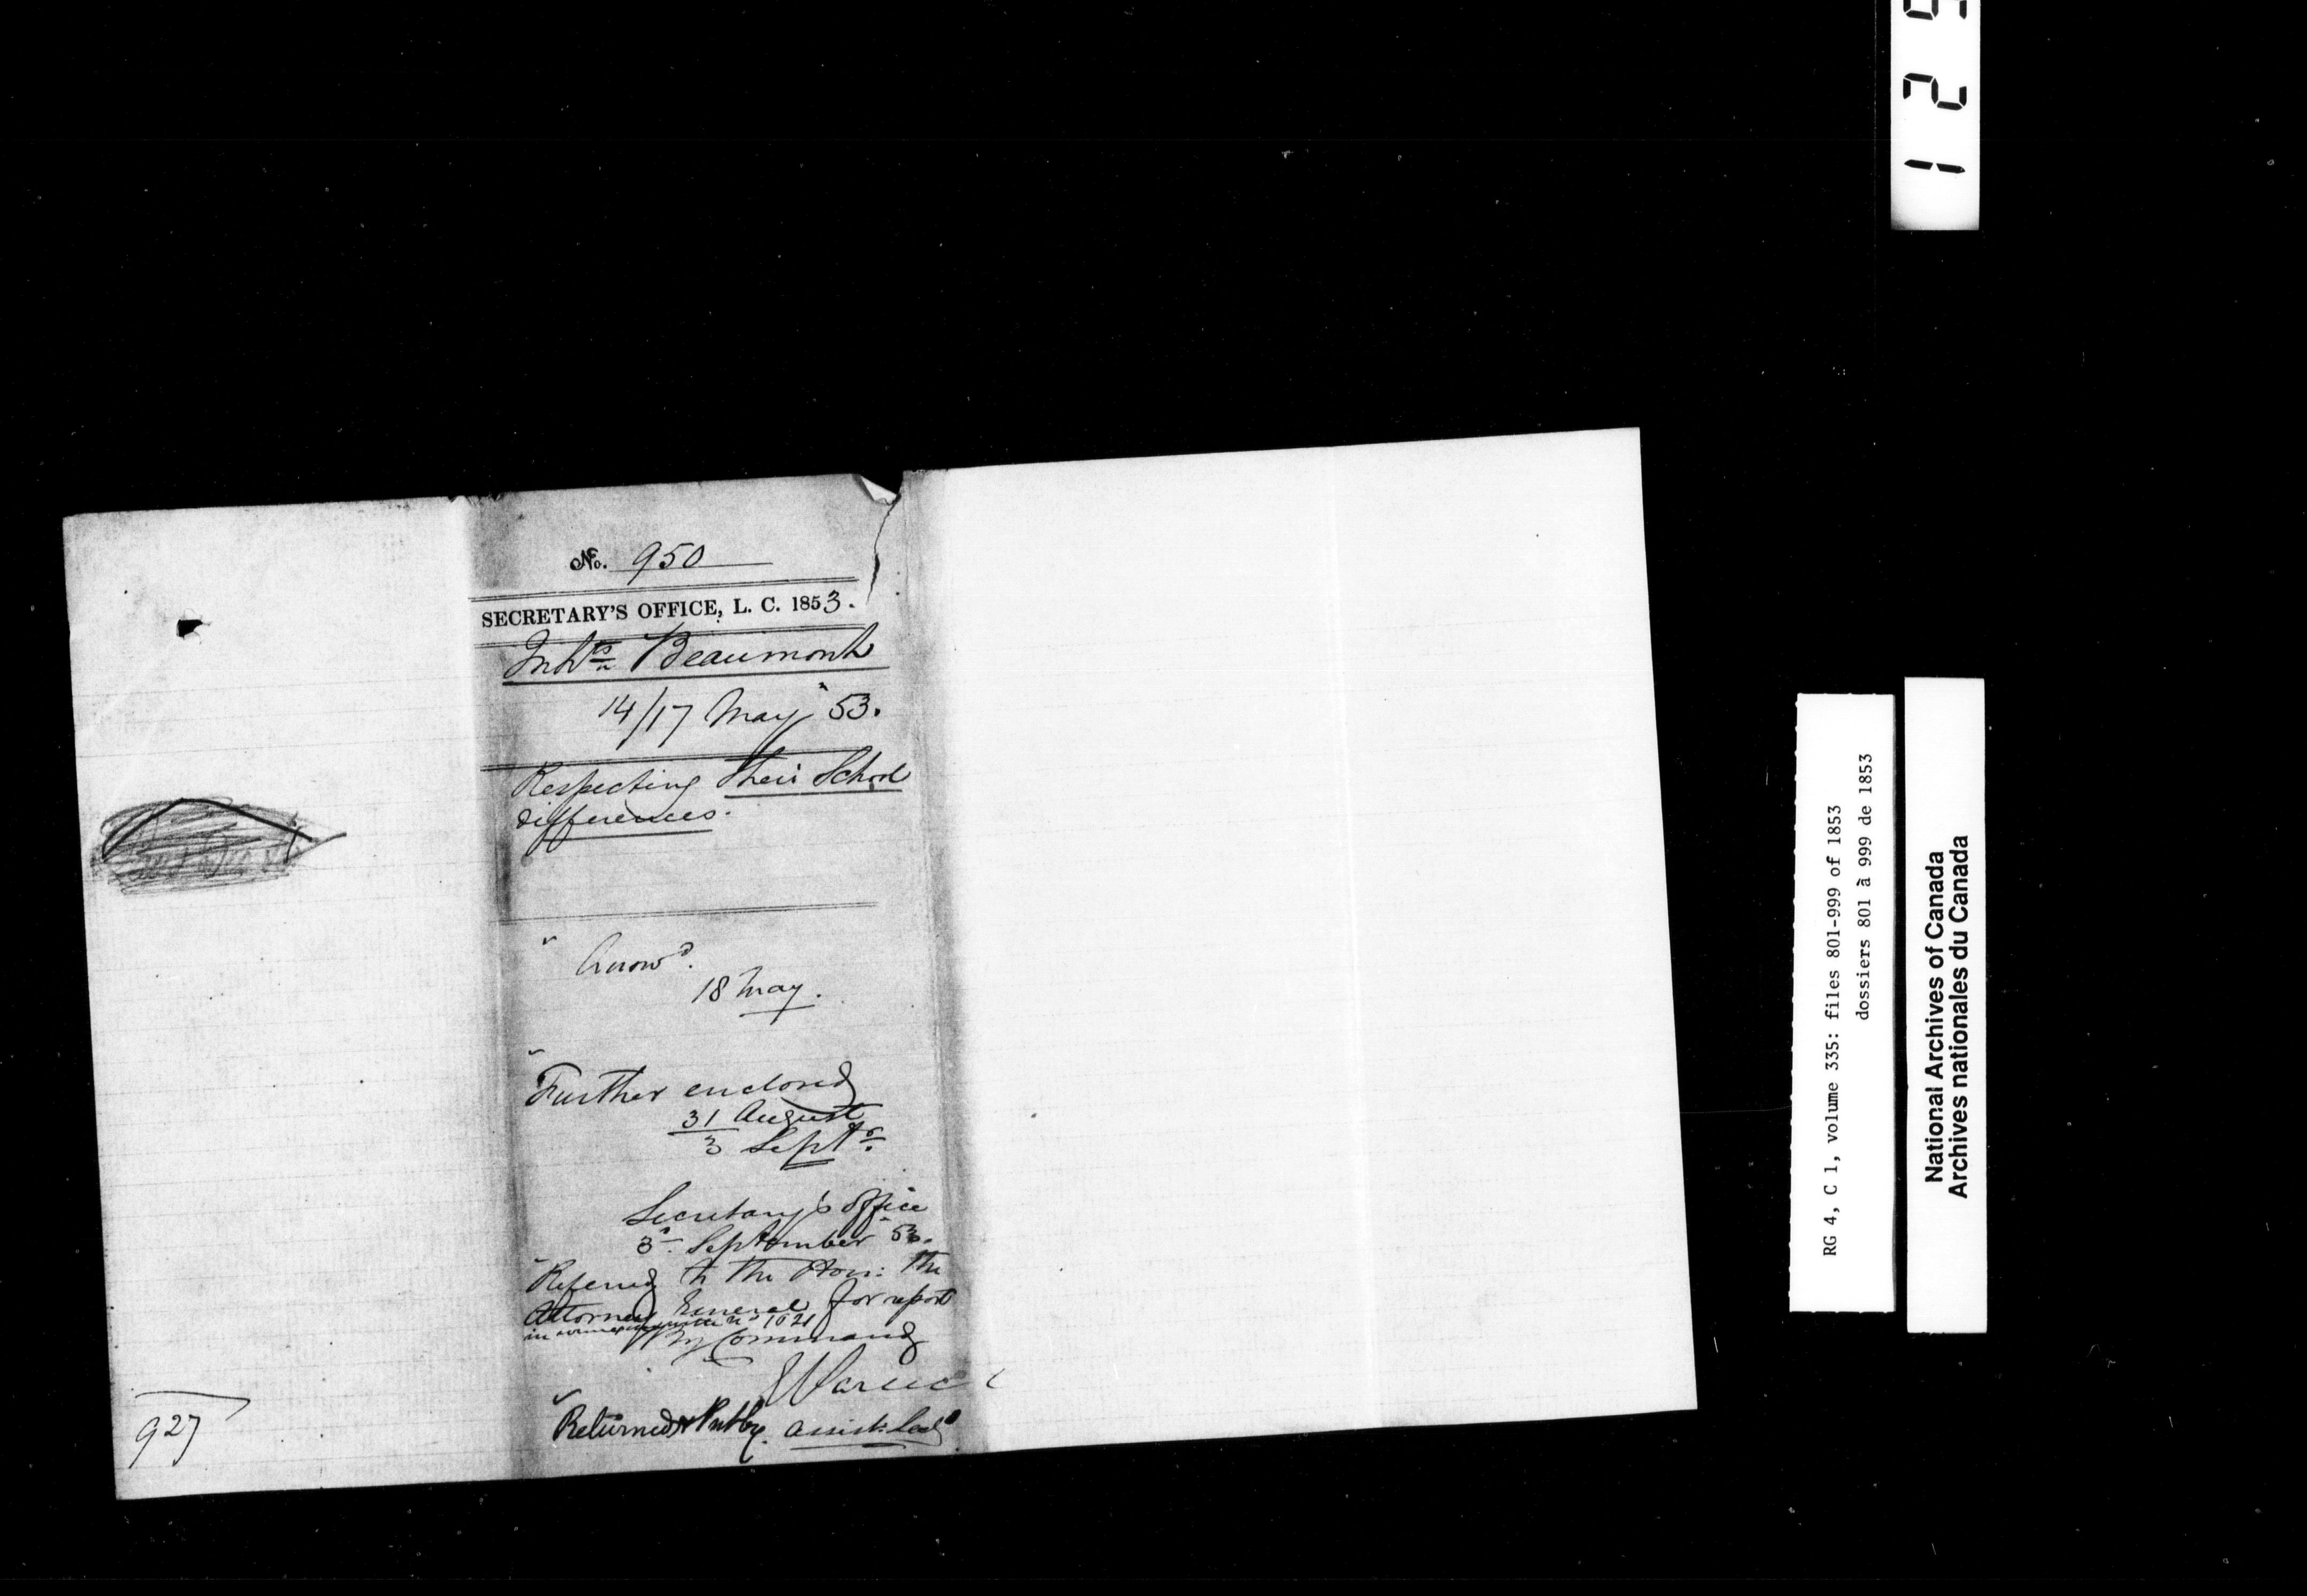 No. 950
SECRETARY'S OFFICE, L. C. 1853.
Inhts Beaumont
14/17 May 53.
Respecting their School
differences.
18 May.
Further enclosed
31 August
3 Septr.
Secretary's Office
3d. September 53.
Referred to the Hon: the
Attorney General for report
in connexion with no 1621
By Command
Returned &
Assist: Secy
927
RG 4, C 1, volume 335: files 801-999 of 1853
dossiers 801 à 999 de 1853
National Archives of Canada
Archives nationales du Canada